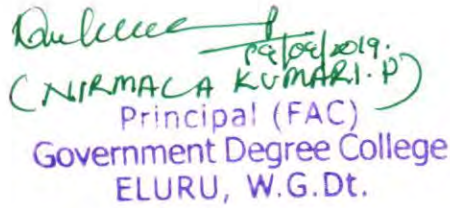 2019.
(NIRMALA KUMARI. P)
Principal (FAC)
Government Degree College
ELURU, W.G.Dt.